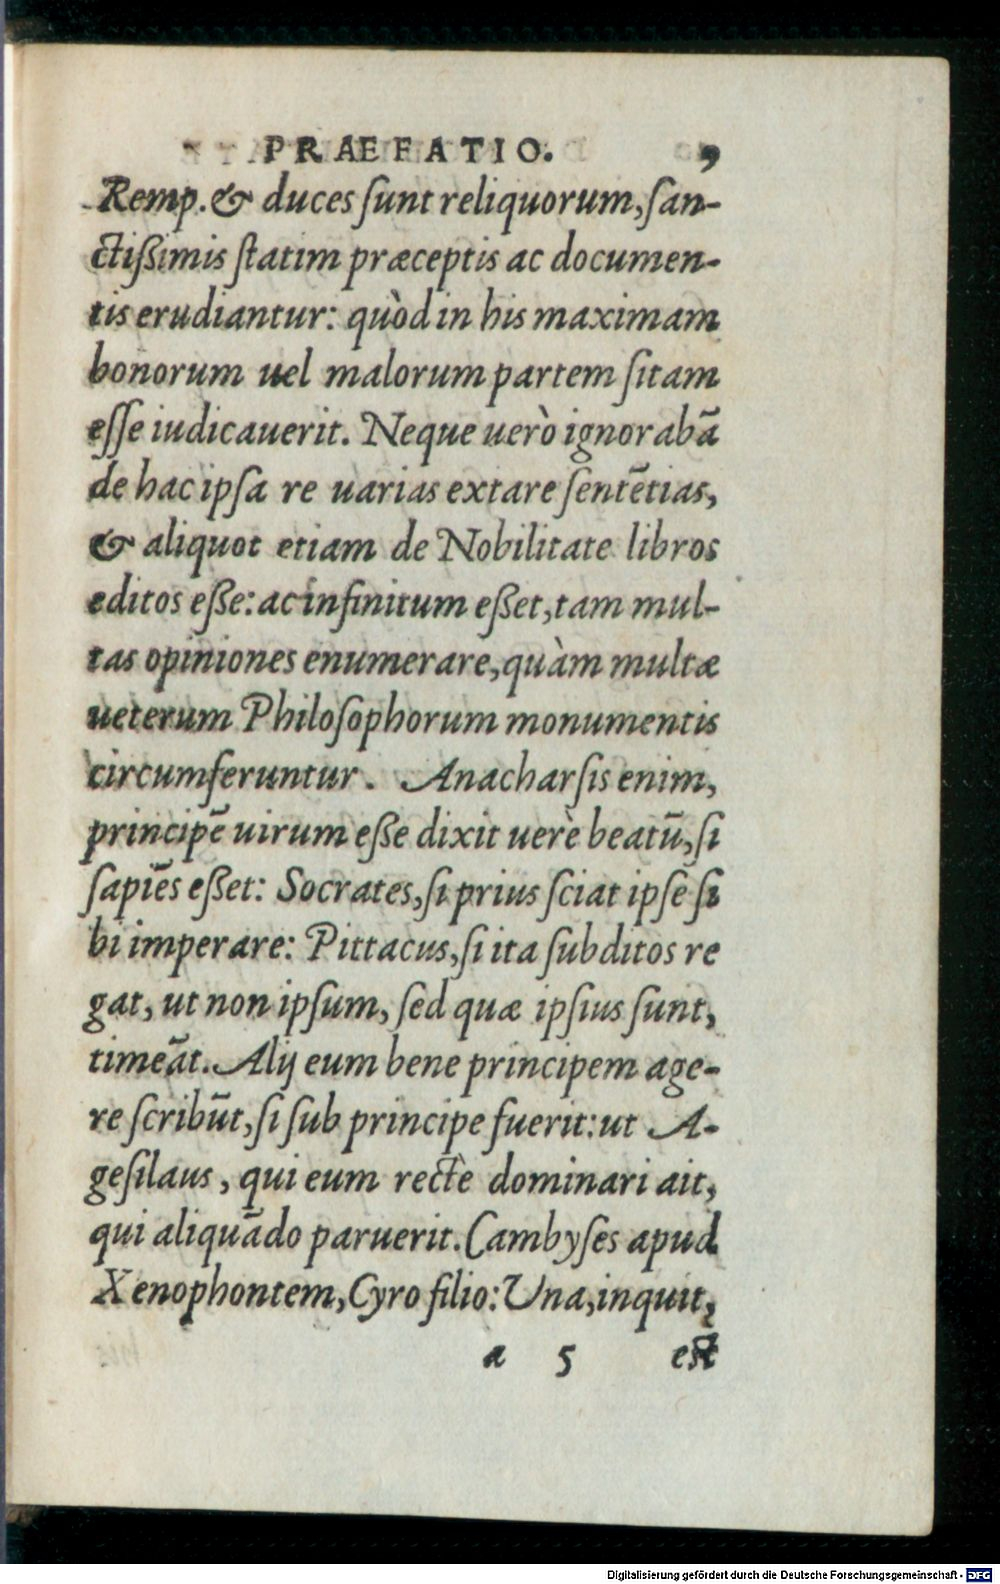 PRÆFATIO. 9
Remp. & duces sunt reliquorum, san-
ctißimis statim præceptis ac documen-
tis erudiantur: quòd in his maximam
bonorum uel malorum partem sitam
esse iudicauerit. Neque uerò ignorabā
de hac ipsa re uarias extare sentētias,
& aliquot etiam de Nobilitate libros
editos eße: ac infinitum eßet, tam mul-
tas opiniones enumerare, quàm multæ
ueterum Philosophorum monumentis
circumferuntur. Anacharsis enim,
principē uirum eße dixit uerè beatū, si
sapiēs eßet: Socrates, si prius sciat ipse si
bi imperare: Pittacus, si ita subditos re
gat, ut non ipsum, sed quæ ipsius sunt,
timeāt. Alij eum bene principem age-
re scribūt, si sub principe fuerit: ut A-
gesilaus, qui eum rectè dominari ait,
qui aliquādo paruerit. Cambyses apud
Xenophontem, Cyro filio: Una, inquit,
a 5 est
Digitalisierung gefördert durch die Deutsche Forschungsgemeinschaft - DFG